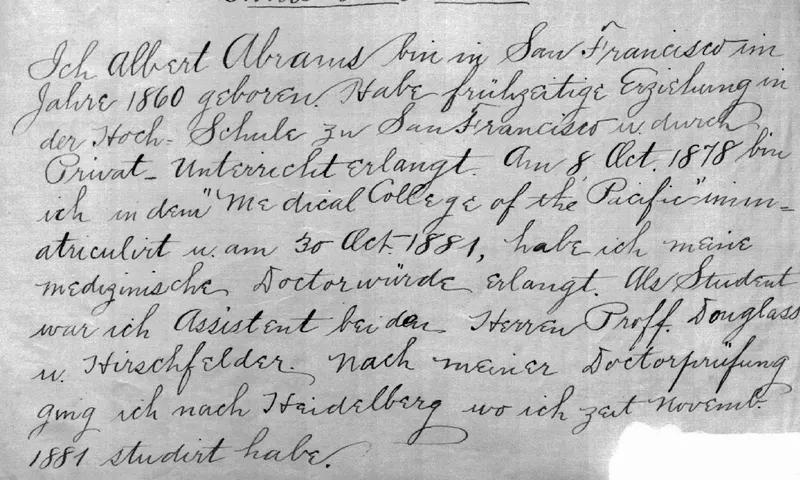 Ich Albert Abrams bin in San Francisco im
Jahre 1860 geboren. Habe frühzeitige Erziehung in
der Hoch-Schule zu San Francisco u. durch
Privat-Unterricht erlangt. Am 8 Oct. 1878 bin
ich in dem "Medical College of the Pacific" imm=
atriculirt u. am 30 Oct. 1881, habe ich meine
medizinische Doctorwürde erlangt. Als Student
war ich Assistent bei den Herren Proff. Douglass
u. Hirschfelder. Nach meiner Doctorprüfung
ging ich nach Heidelberg wo ich zeit Novemb.
1881 studirt habe.